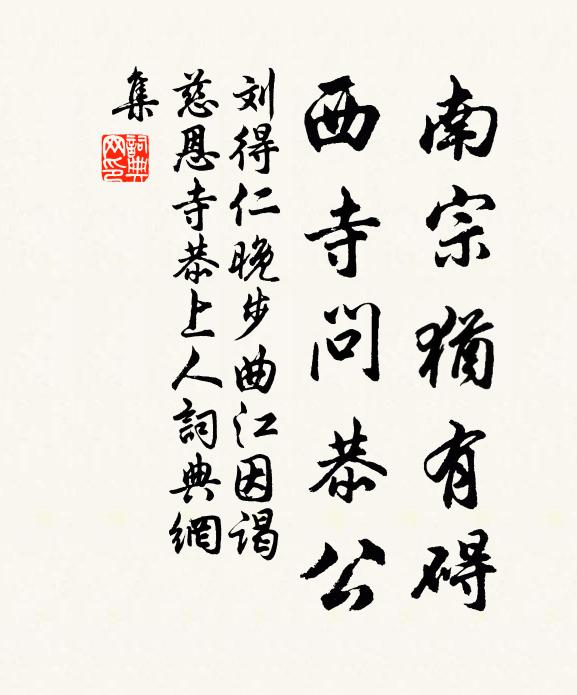 南宗犹有碍
西寺问恭公
刘得仁晚步曲江因谒
慈恩寺恭上人詞典網
集
詞典網印